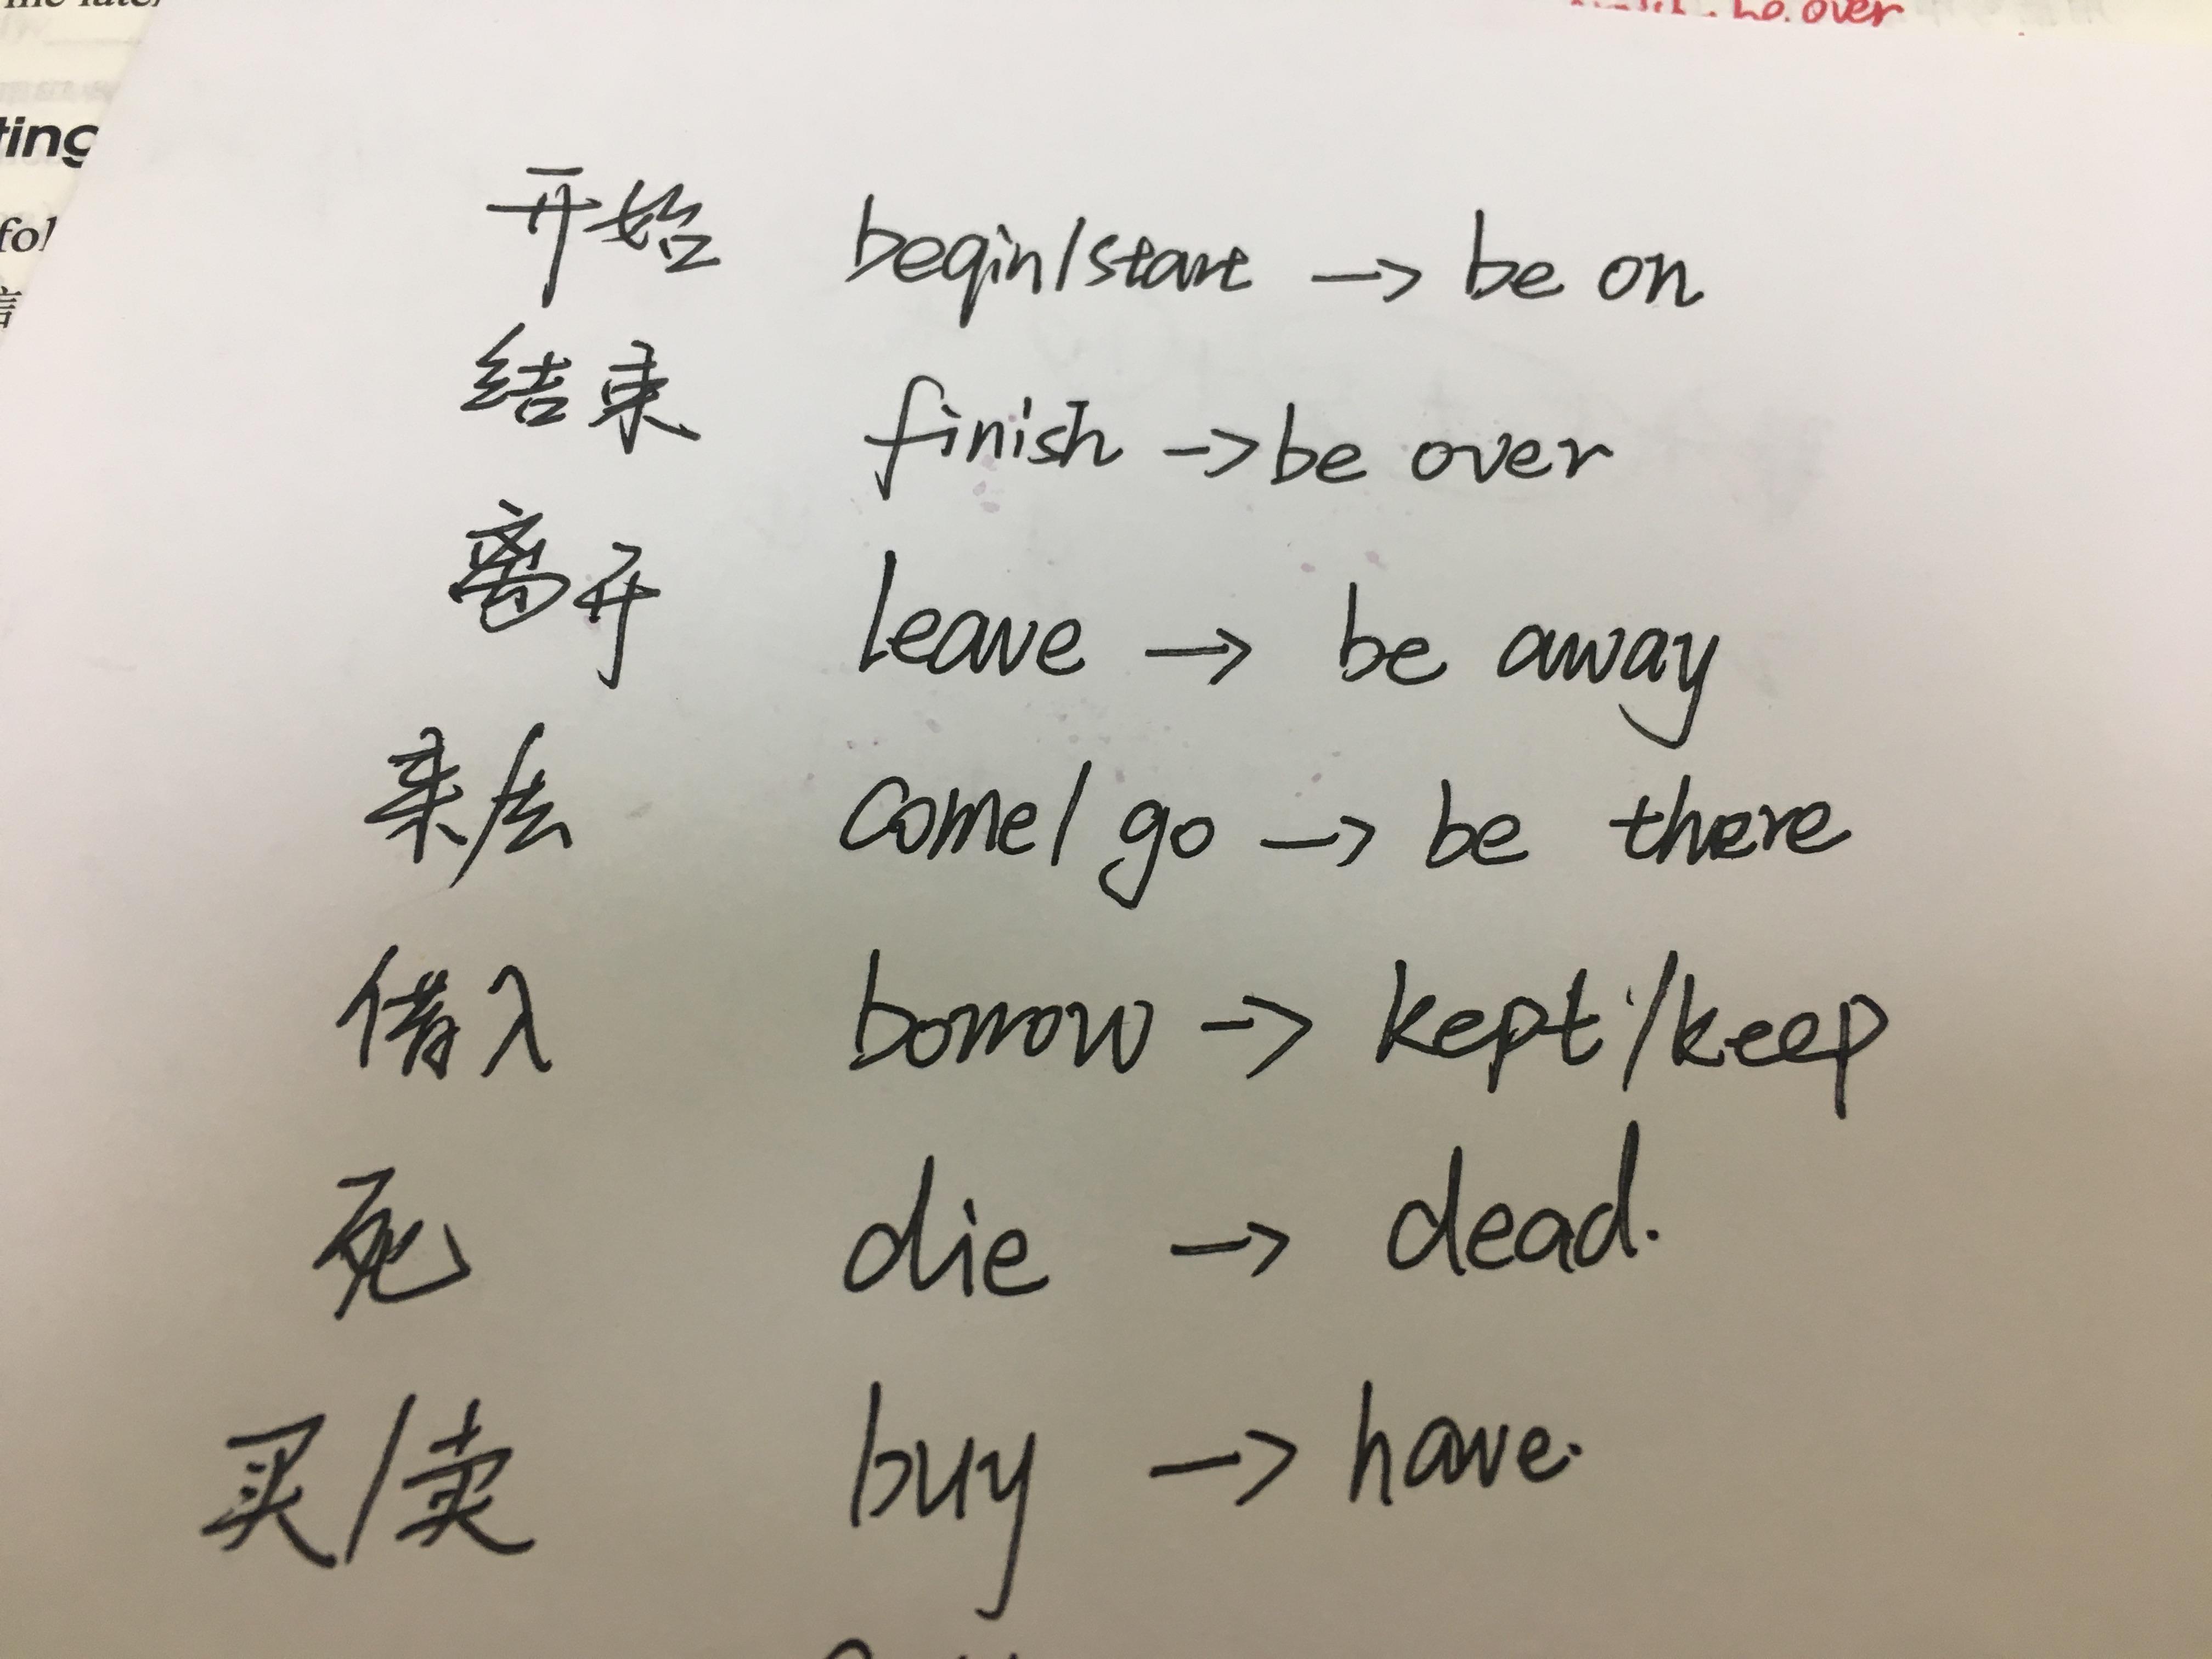 be over
ting
fol
信
开始 begin/start → be on
结束 finish → be over
离开 leave → be away
来/去 come/ go → be there
借入 borrow → kept/keep
死 die → dead.
买/卖 buy → have.